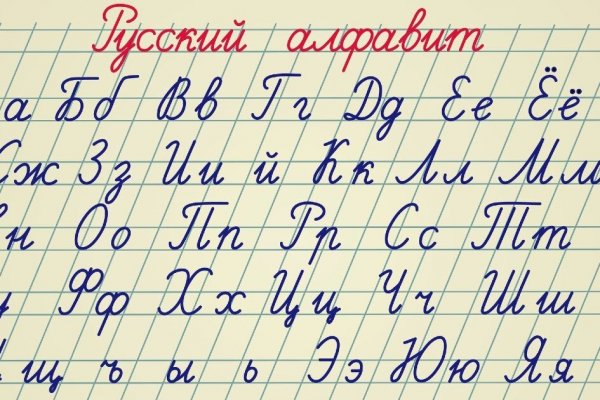 Русский алфавит
а Бб Вв Гг Дд Ее Ёё
ж Зз Ии й Кк Лл Мм
н Оо Пп Рр Сс Тт
Фф Хх Цц Чч Шш
щ ъ ы ь Ээ Юю Яя